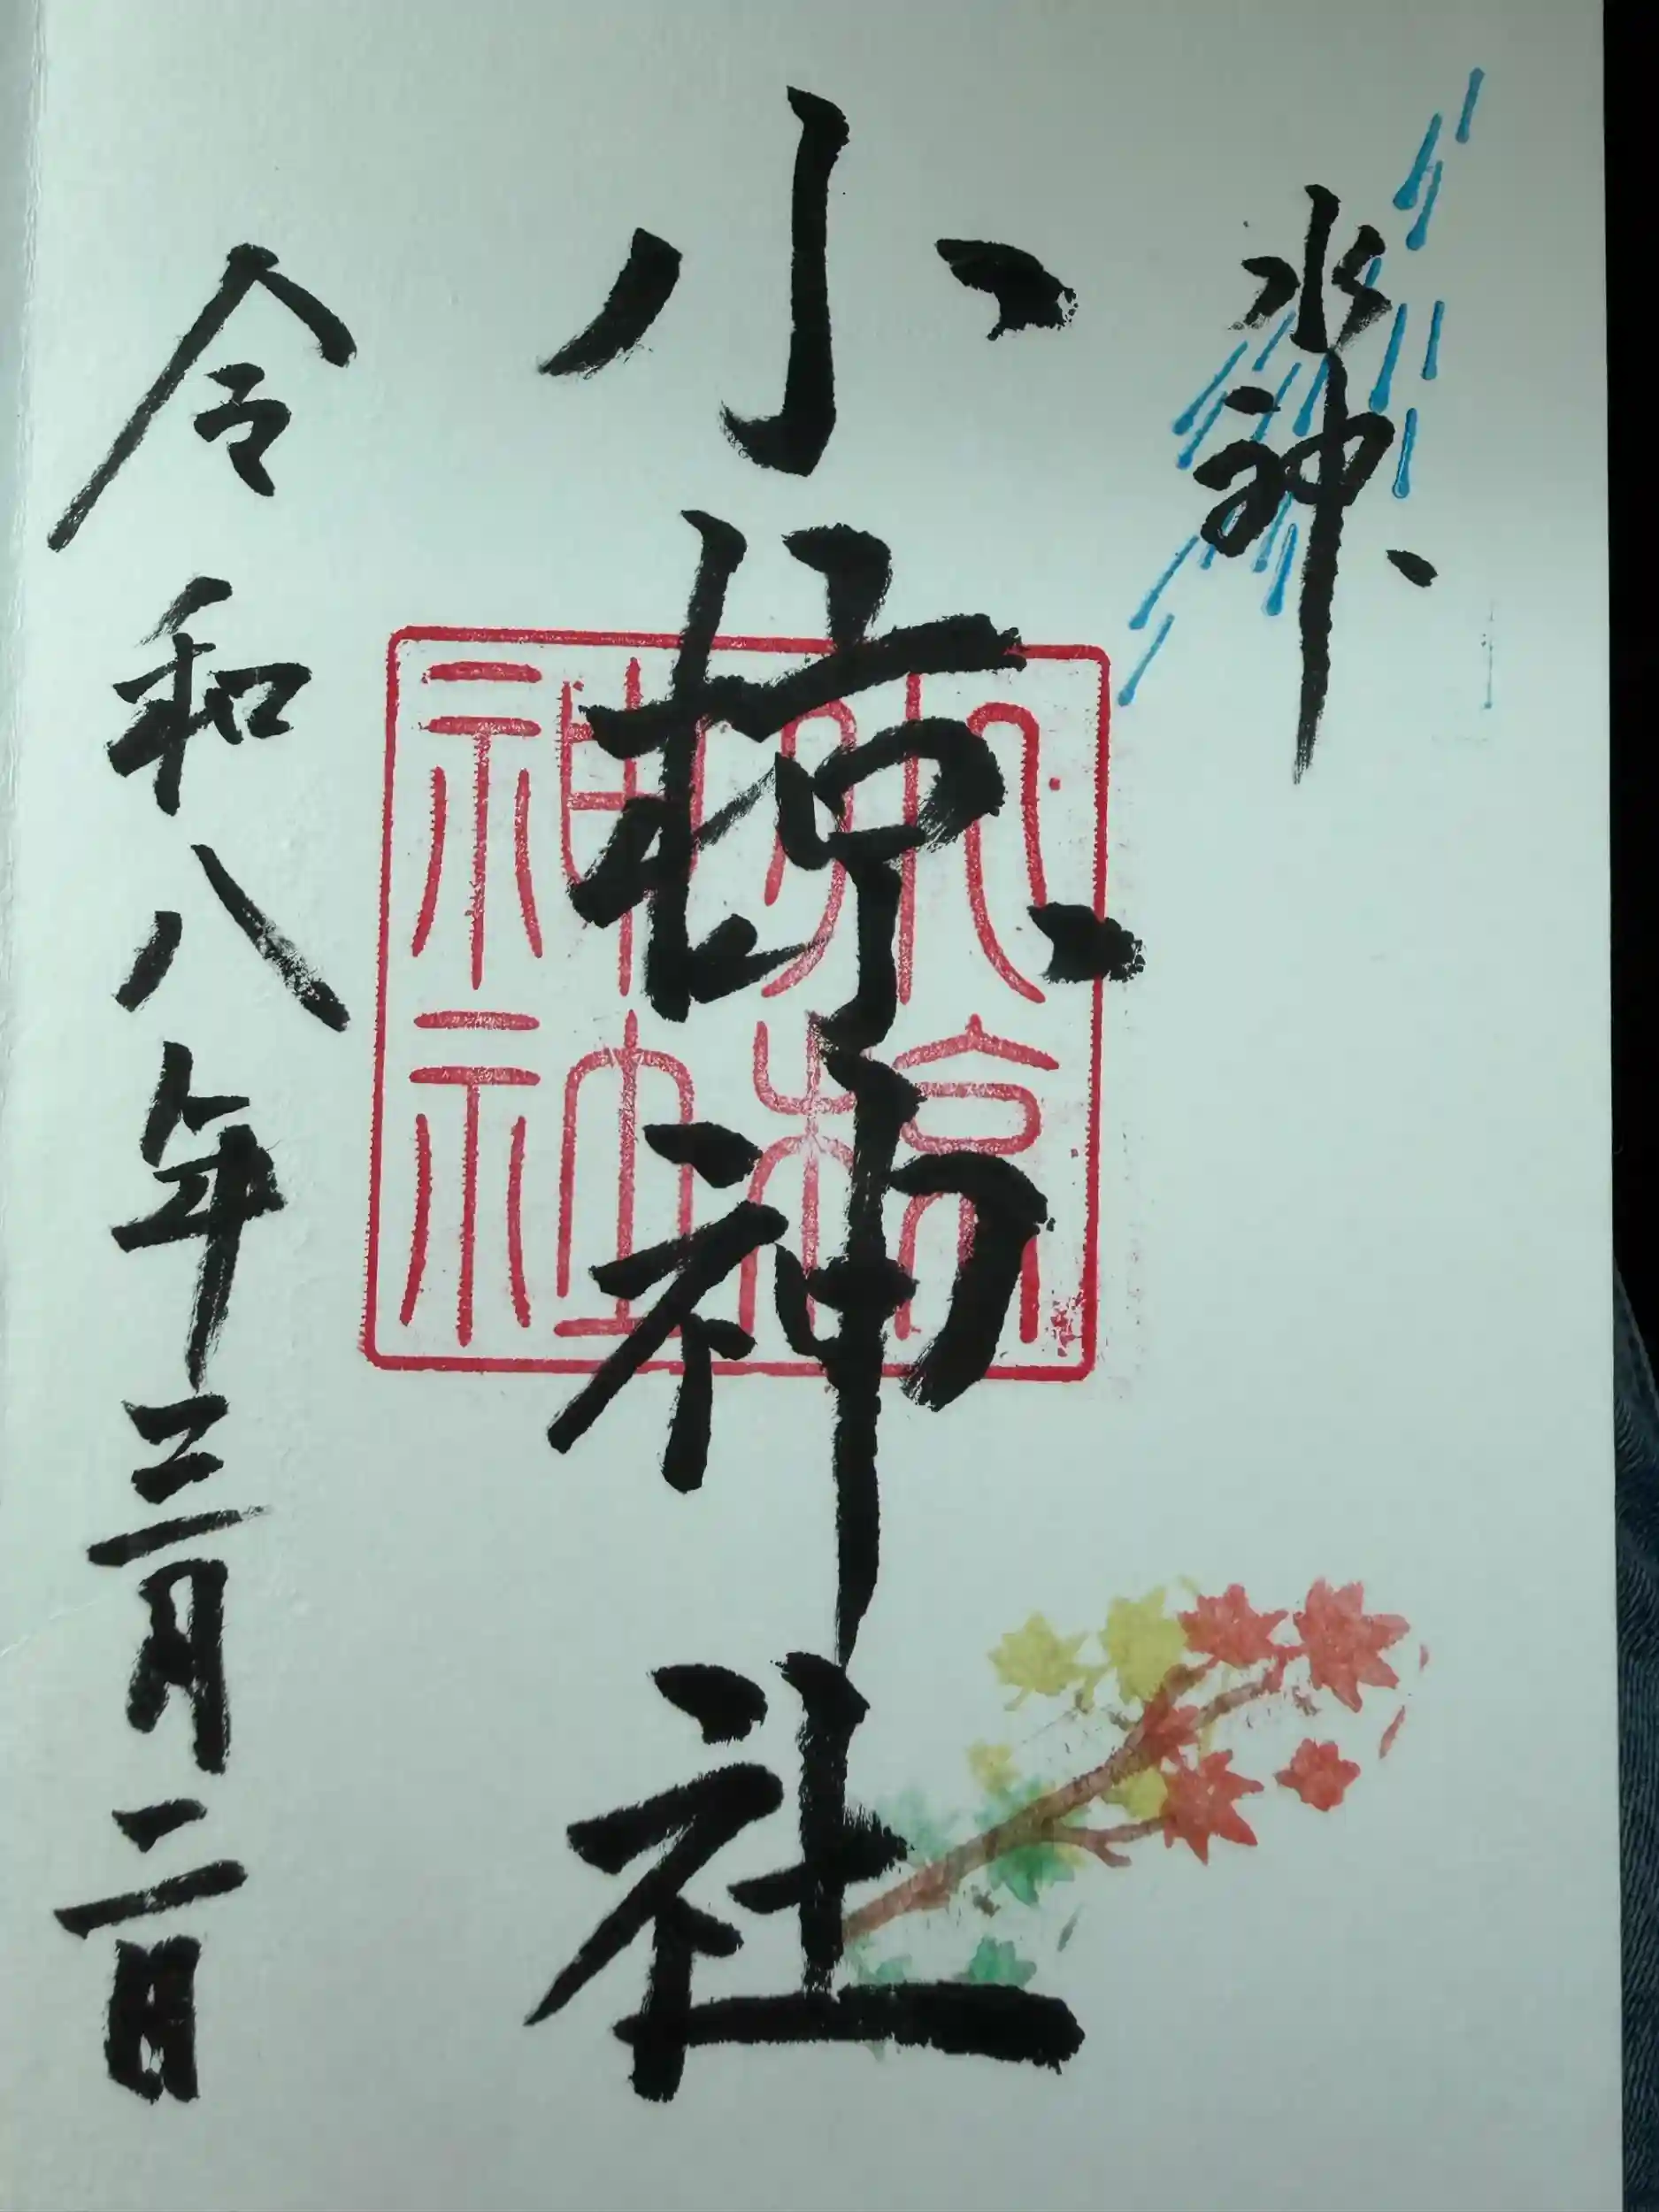 水神
小椋神社
小椋神社
令和八年三月二日